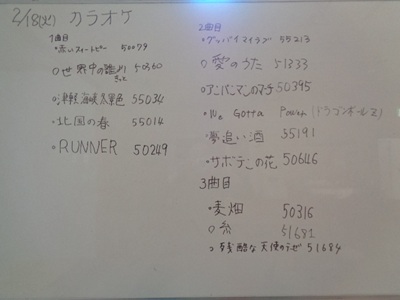 2/18(火) カラオケ
1曲目
・赤いスイートピー 50079
○世界中の誰より きっと 50360
○津軽海峡冬景色 55034
・北国の春 55014
○RUNNER 50249
2曲目
・グッバイマイラブ 55213
○愛のうた 51333
○アンパンマンのマーチ 50395
・We Gotta Power (ドラゴンボールZ)
・夢追い酒 55191
・サボテンの花 50646
3曲目
・麦畑 50316
○糸 51681
○残酷な天使のテーゼ 51684